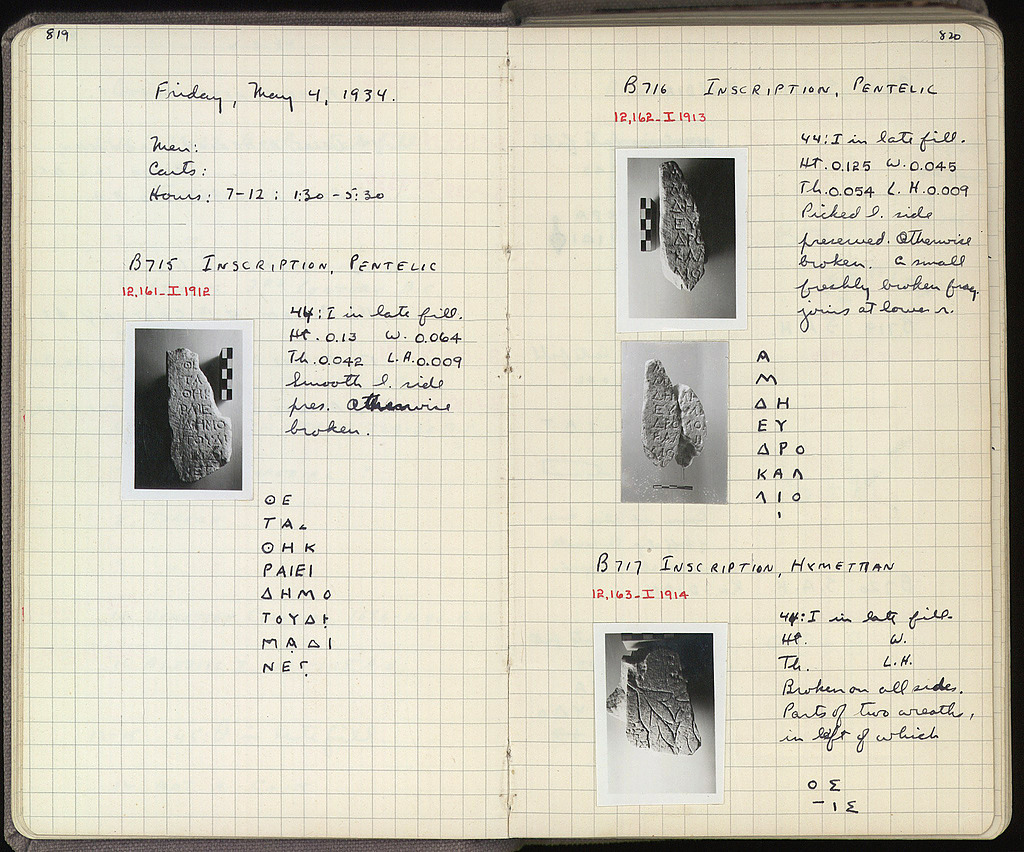 819
Friday, May 4, 1934.
Men:
Carts:
Hours: 7-12 ; 1:30 - 5:30
B715 INSCRIPTION, PENTELIC
12,161-I 1912
44:I in late fill.
Ht. 0.13 W. 0.064
Th. 0.042 L.H. 0.009
Smooth l. side
pres. Otherwise
broken.
ΘΕ
ΤΑ
ΘΗΚ
ΡΑΙΕΙ
ΔΗΜΟ
ΤΟΥΔΙ
ΜΑΔΙ
ΝΕΓ
820
B716 INSCRIPTION, PENTELIC
12,162-I 1913
44:I in late fill.
Ht. 0.125 W. 0.045
Th. 0.054 L.H. 0.009
Picked l. side
preserved. Otherwise
broken. A small
freshly broken frag.
joins at lower r.
Α
Μ
ΔΗ
ΕΥ
ΔΡΟ
ΚΑΛ
ΛΙΟ
B717 INSCRIPTION, HYMETTIAN
12,163-I 1914
44:I in late fill.
Ht. W.
Th. L.H.
Broken on all sides.
Parts of two wreaths,
in left of which
ΟΣ
ΙΣ